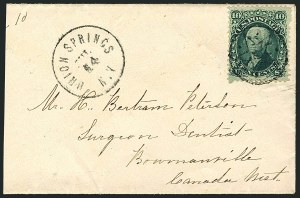 1d
UNION SPRINGS
N.Y
10 U.S. POSTAGE 10
Mr. H. Bertram Peterson
Surgeon Dentist
Bowmanville
Canada West.